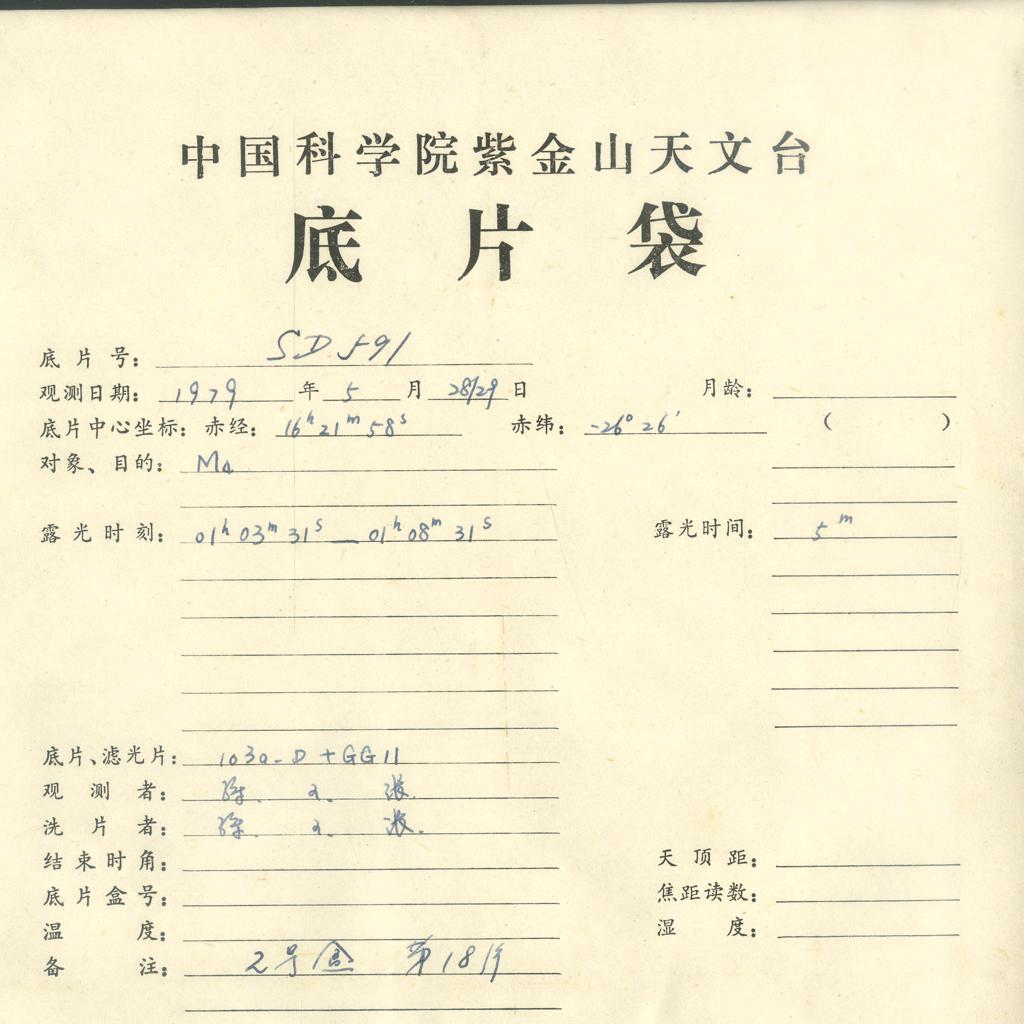 中国科学院紫金山天文台
底片袋
底片号: SD591
观测日期: 1979年5月28/29日 月龄:
底片中心坐标: 赤经: 16h21m58s 赤纬: -26°26′ ( )
对象、目的: M4
露光时刻: 01h03m31s — 01h08m31s 露光时间: 5m
底片、滤光片: 103a-D+GG11
观测者:
洗片者:
结束时角: 天顶距:
底片盒号: 焦距读数:
温度: 湿度:
备注: 2号盒 第18片